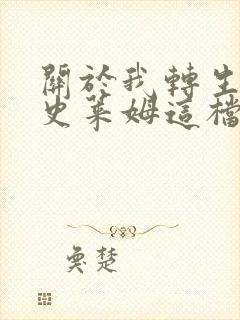 關於我轉生
史萊姆這檔
奐楚